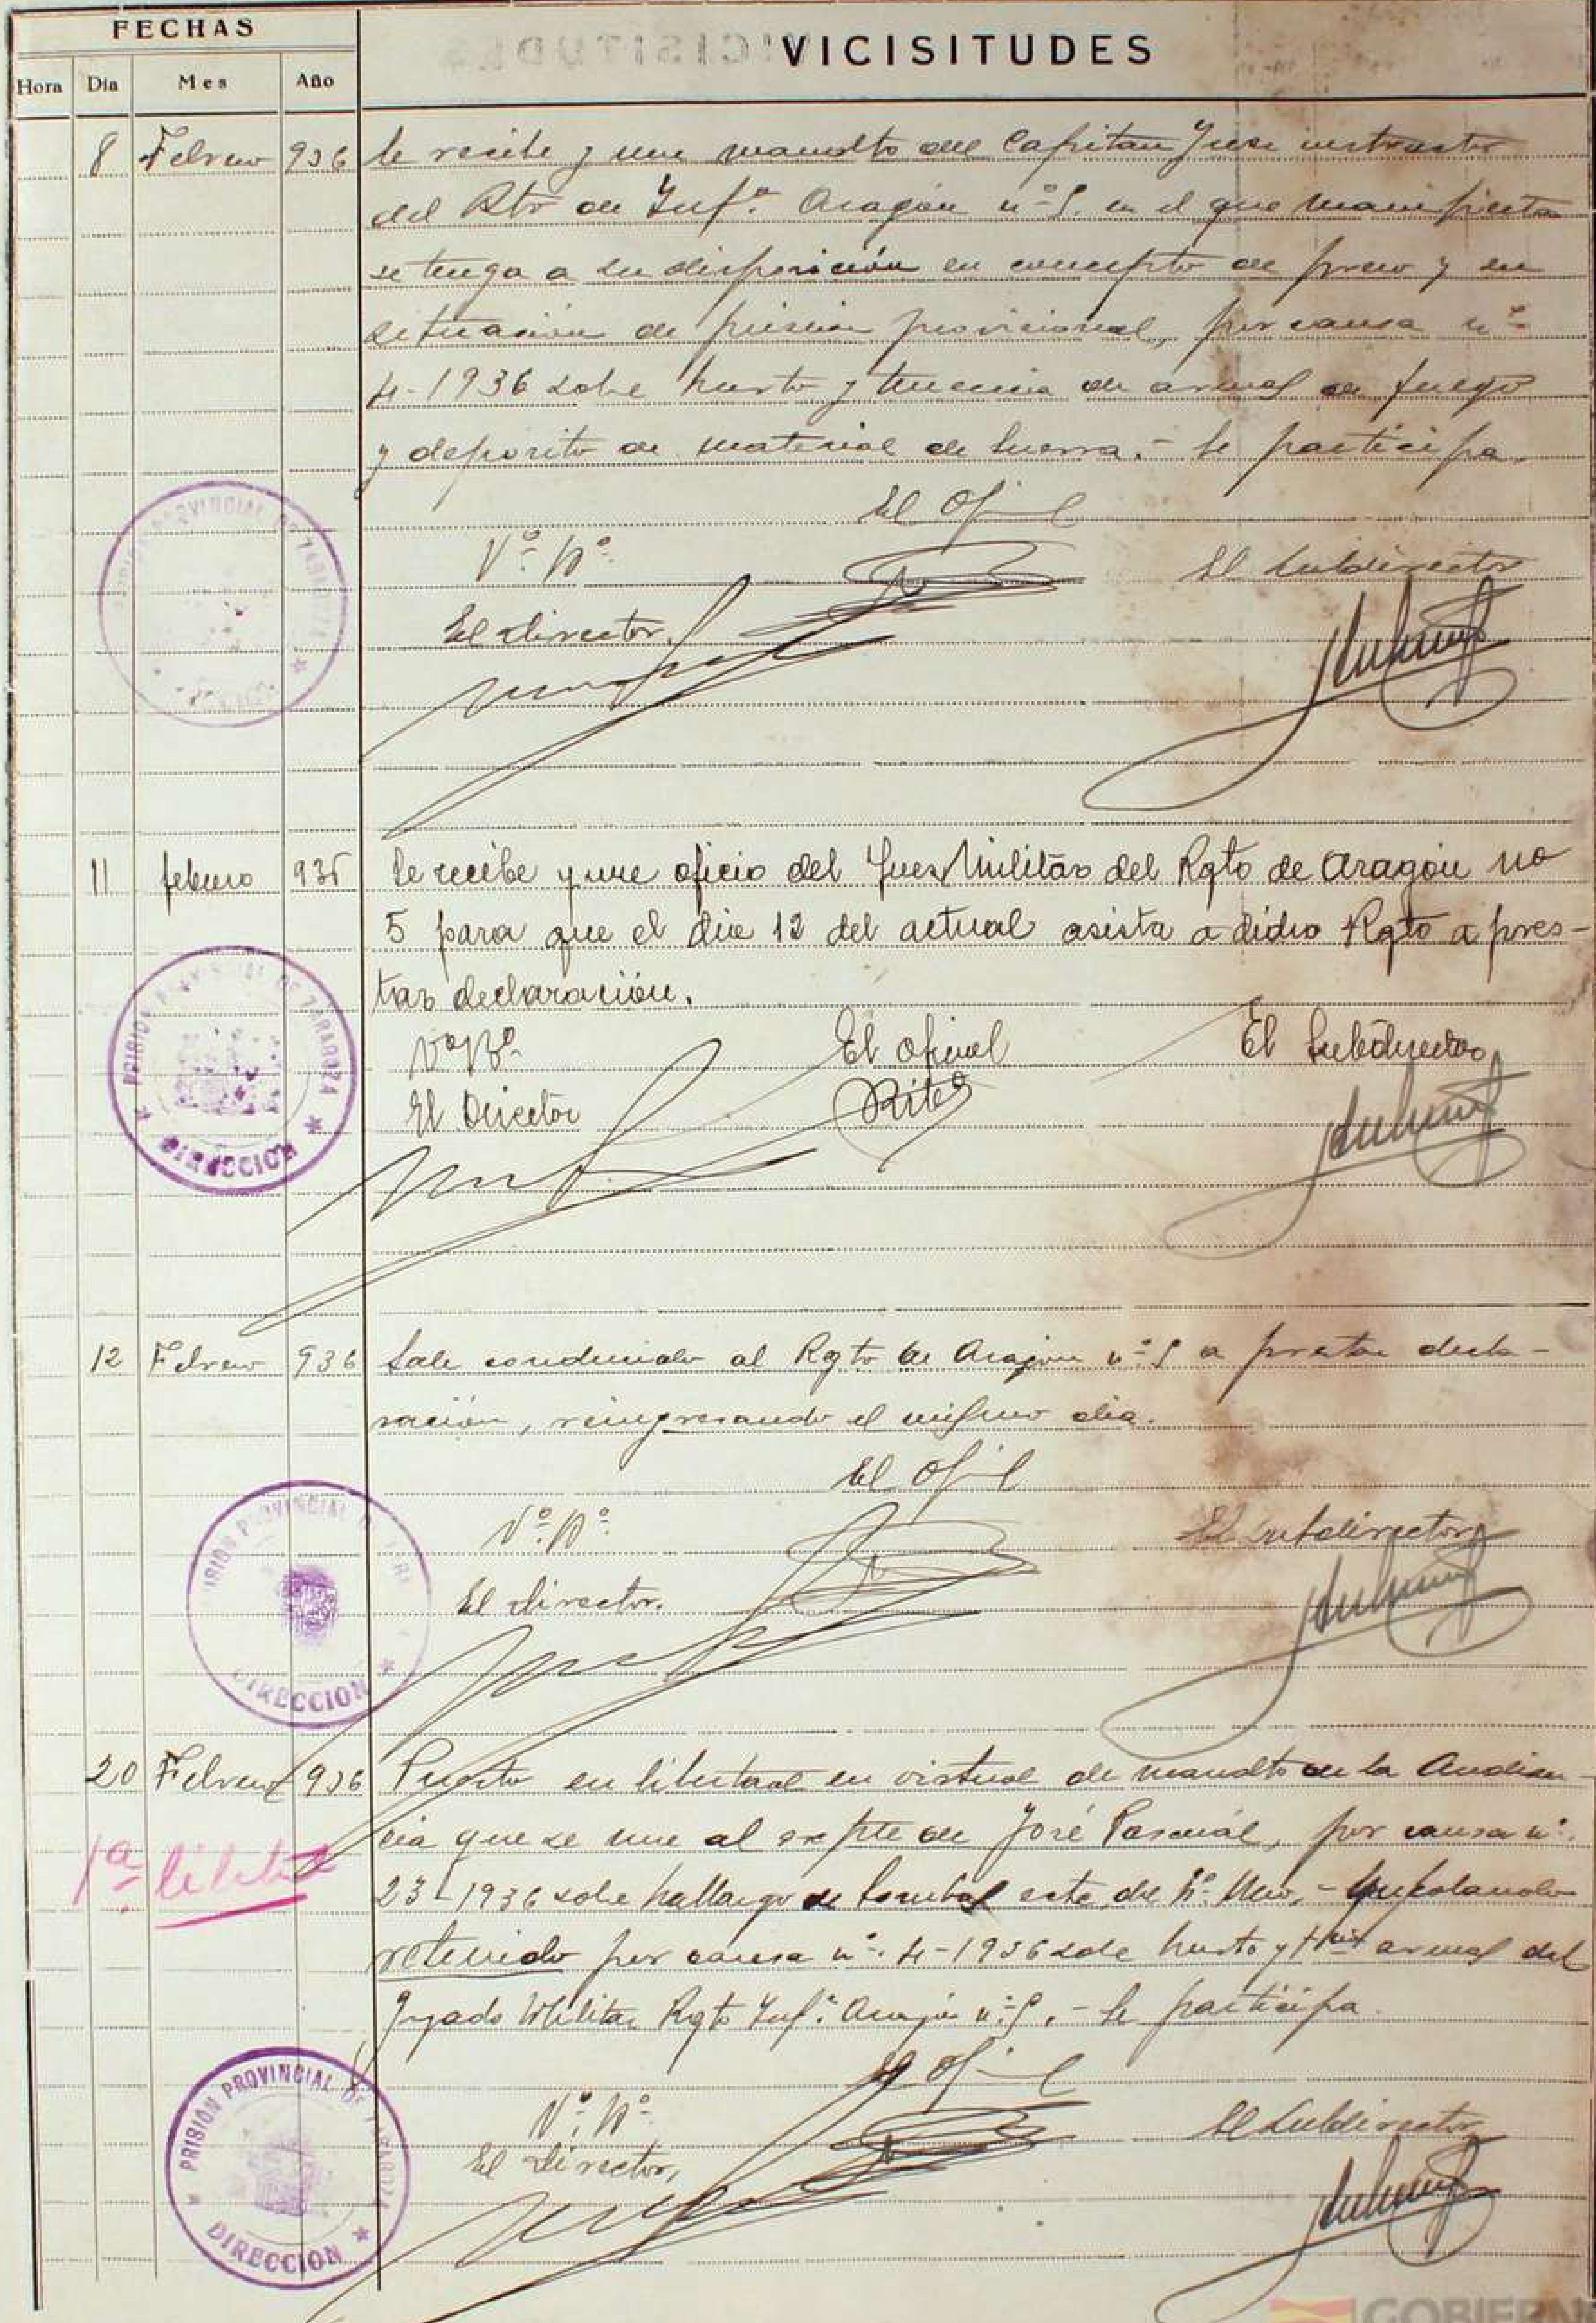 FECHAS
VICISITUDES
Hora Dia Mes Año
8 Febrero 936 Se recibe y une mandto del Capitan Juez instructor
del Rto de Infª. Aragón nº 5. en el que manifiesta
se tenga a su disposición en concepto de preso y en
situación de prisión provisional, por causa nº
4-1936 sobre hurto y tenencia de armas de fuego
y deposito de material de Guerra. - Se participa.
El Ofil
Vº. Bº.
El Subdirector
El Director.
11 febrero 936 Se recibe y une oficio del Juez Militar del Rgto de Aragón no
5 para que el dia 12 del actual asista a dicho Rgto a pres-
tar declaración.
VºBº
El Oficial
El Subdirector
El Director
Rites
PRISION PROVINCIAL DE ZARAGOZA
DIRECCION
12 Febrero 936 Sale conducido al Rgto de Aragón nº 5 a prestar decla-
ración, reingresando el mismo dia.
El Ofil
Vº. Bº.
El Subdirector
El Director.
PRISION PROVINCIAL
DIRECCION
20 Febrero 936 Puesto en libertad en virtud de mandto de la Audien-
cia que se une al expte de José Pascual, por causa nº.
1ª libertad
23-1936 sobre hallazgo de bombas este, del - quedando
retenido por causa nº. 4-1936 sobre hurto y tcia armas del
Jzgado Militar Rgto Infª. Aragón nº. 5. - Se participa.
El Ofil
Vº. Bº.
El Subdirector
El Director,
PRISION PROVINCIAL DE ZARAGOZA
DIRECCION
GOBIERN